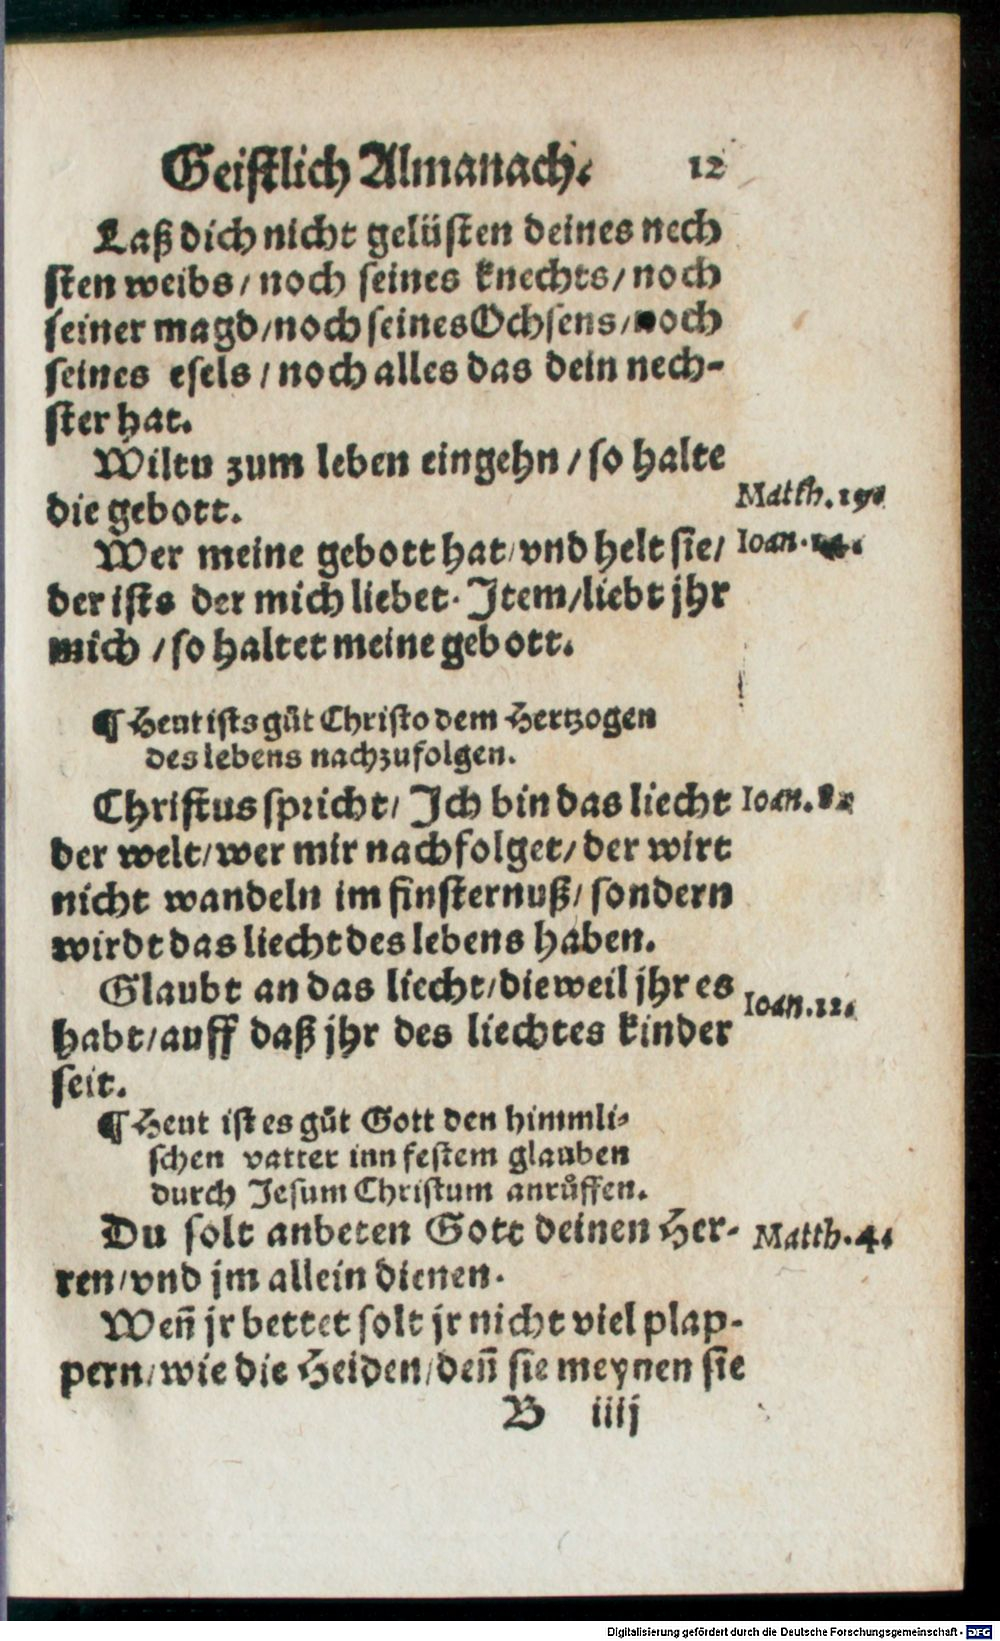 Geistlich Almanach. 12
Laß dich nicht gelüsten deines nech
sten weibs/ noch seines knechts/ noch
seiner magd/ noch seines Ochsens/ noch
seines esels / noch alles das dein nech-
ster hat.
Wiltu zum leben eingehn / so halte
die gebott.
Matth. 19.
Wer meine gebott hat/ vnd helt sie/
Ioan. 14.
der ists der mich liebet. Item/ liebt jhr
mich / so haltet meine gebott.
¶ Heut ists gůt Christo dem Hertzogen
des lebens nachzufolgen.
Christus spricht/ Ich bin das liecht
Ioan. 8.
der welt/ wer mir nachfolget/ der wirt
nicht wandeln im finsternuß/ sondern
wirdt das liecht des lebens haben.
Glaubt an das liecht/ dieweil jhr es
Ioan. 12.
habt/ auff daß jhr des liechtes kinder
seit.
¶ Heut ist es gůt Gott den himmli-
schen vatter inn festem glauben
durch Jesum Christum anrůffen.
Du solt anbeten Gott deinen Her-
Matth. 4.
ren/ vnd jm allein dienen.
Wen̄ jr bettet solt jr nicht viel plap-
pern/ wie die Heiden/ den̄ sie meynen sie
B iiij
Digitalisierung gefördert durch die Deutsche Forschungsgemeinschaft - DFG